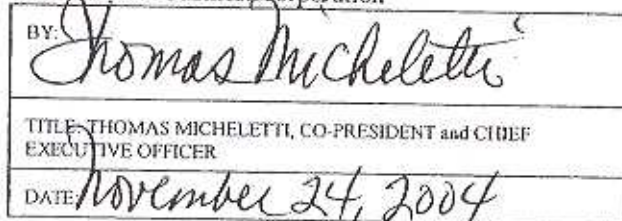 Corporation
BY: Thomas Micheletti
TITLE: THOMAS MICHELETTI, CO-PRESIDENT and CHIEF
EXECUTIVE OFFICER
DATE November 24, 2004